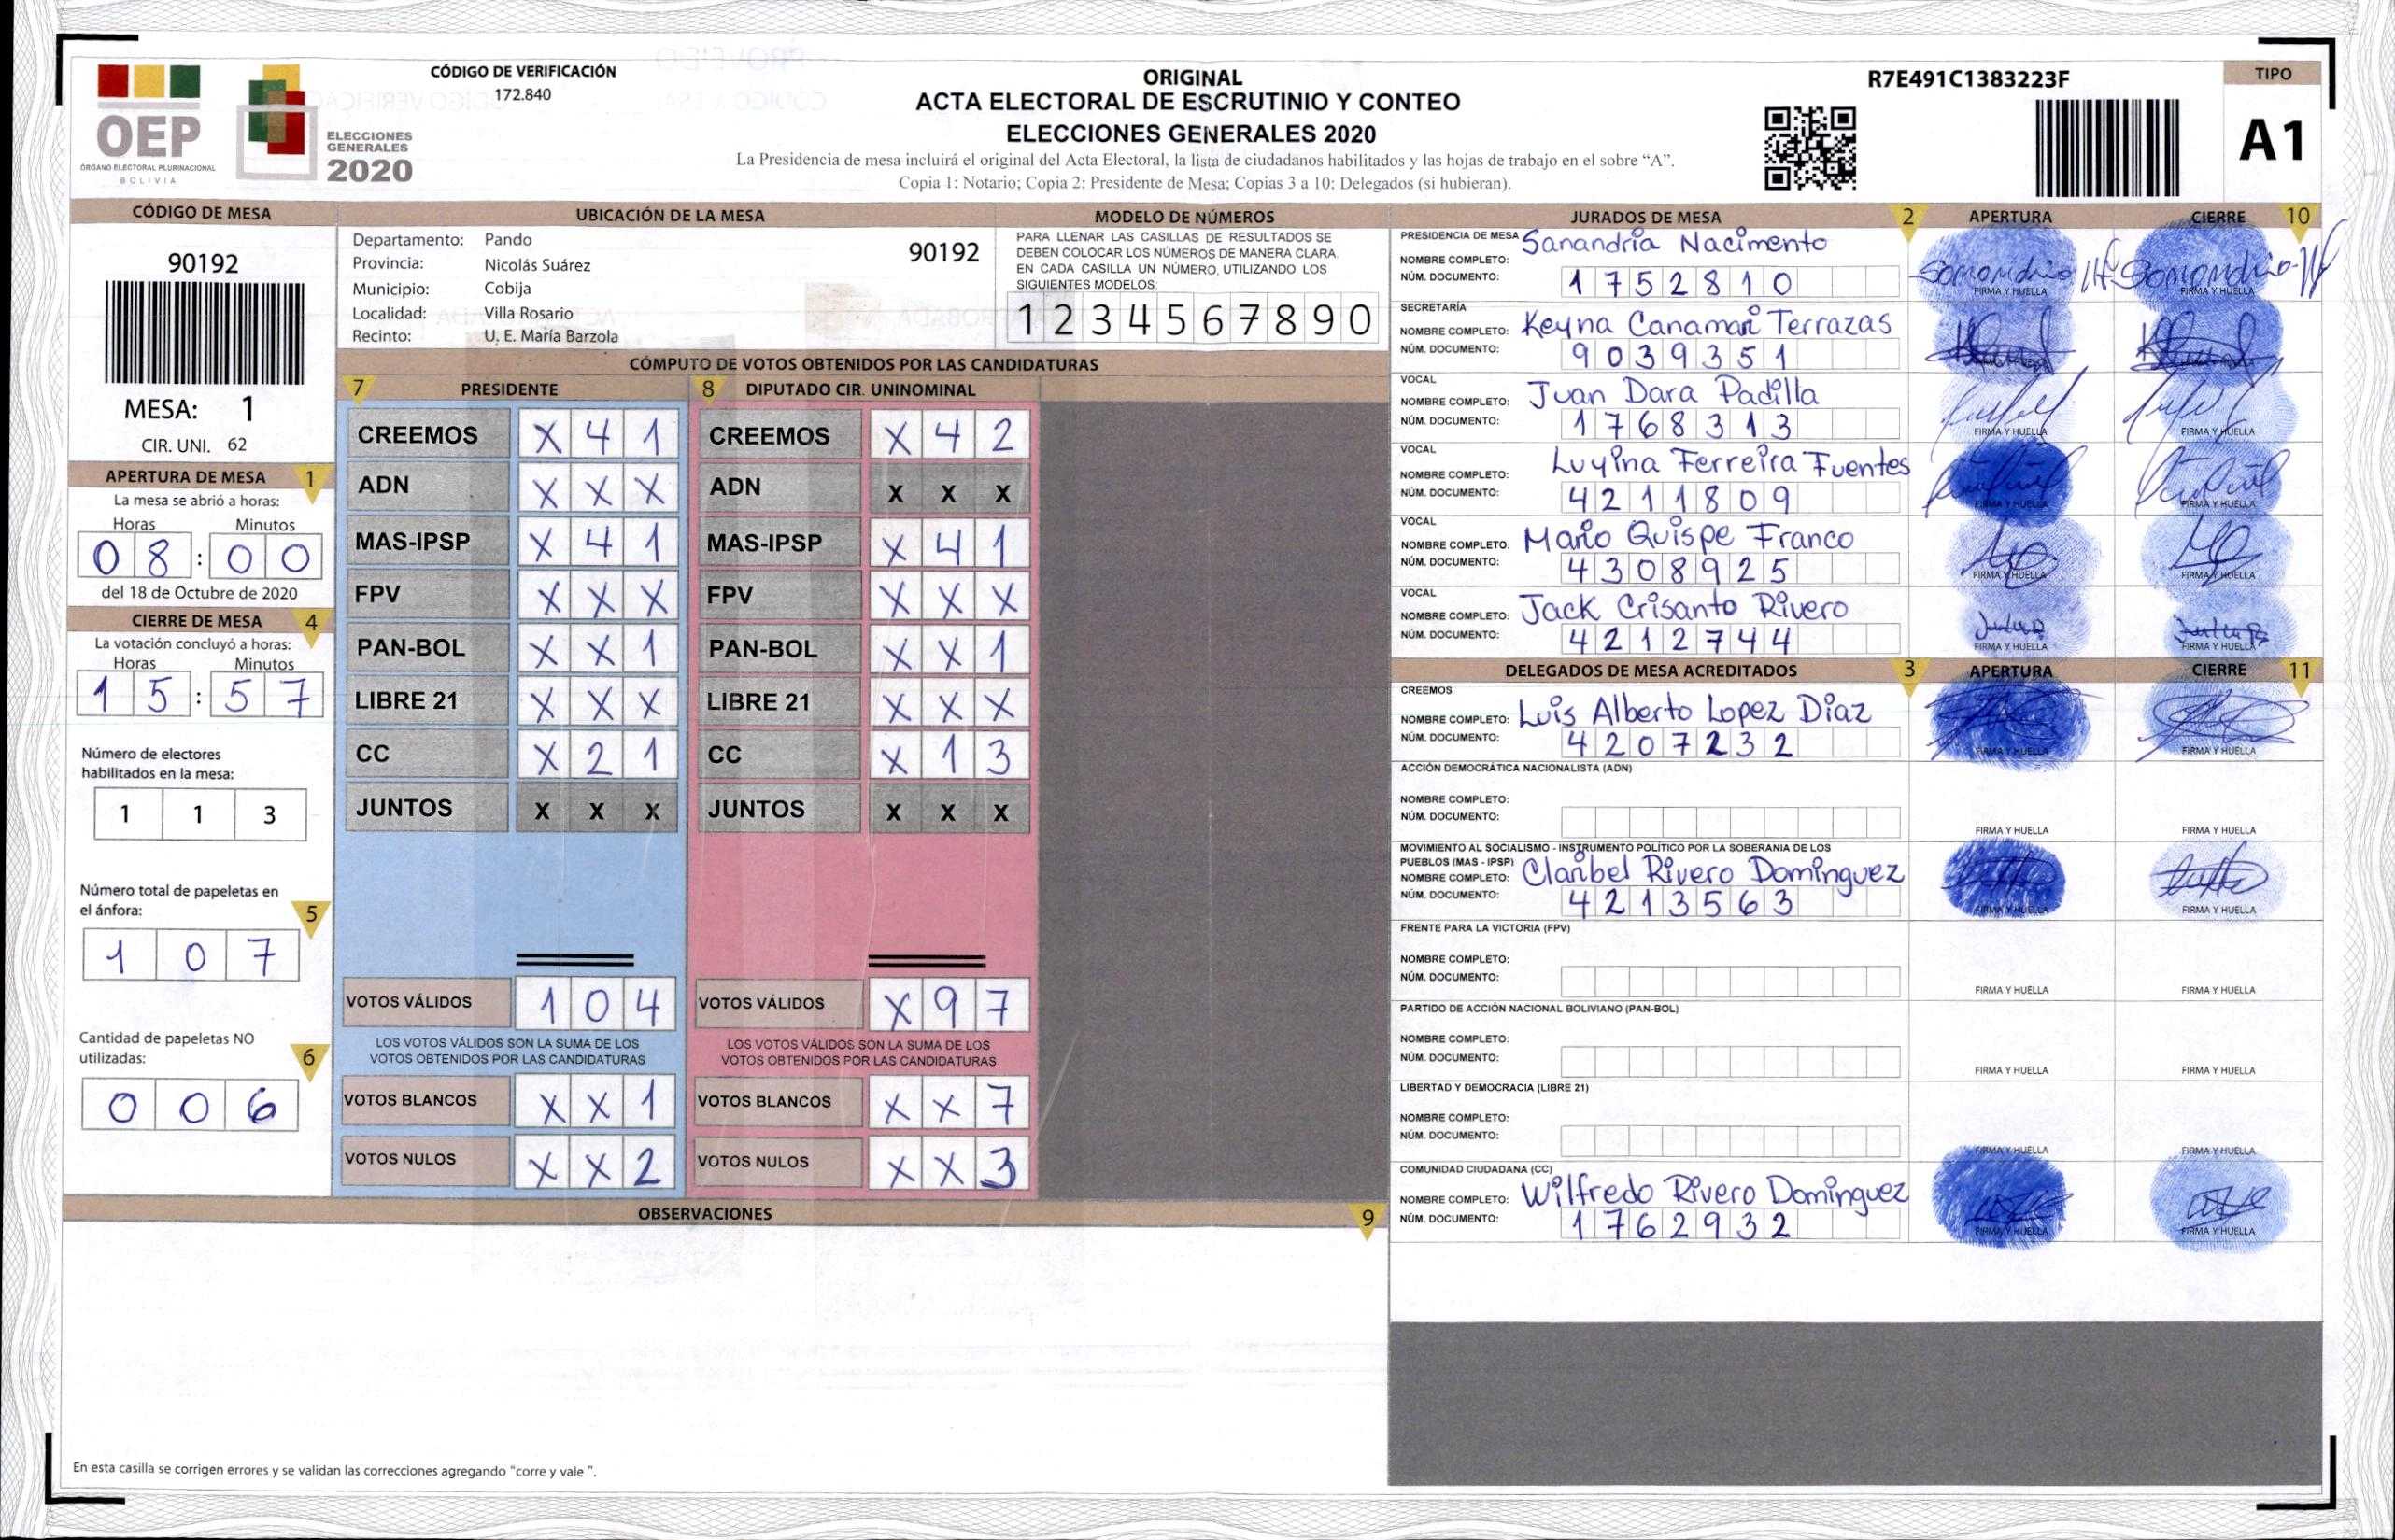 OEP
ÓRGANO ELECTORAL PLURINACIONAL
BOLIVIA
ELECCIONES
GENERALES
2020
CÓDIGO DE VERIFICACIÓN
172.840
ORIGINAL
ACTA ELECTORAL DE ESCRUTINIO Y CONTEO
ELECCIONES GENERALES 2020
La Presidencia de mesa incluirá el original del Acta Electoral, la lista de ciudadanos habilitados y las hojas de trabajo en el sobre “A”.
Copia 1: Notario; Copia 2: Presidente de Mesa; Copias 3 a 10: Delegados (si hubieran).
R7E491C1383223F
TIPO
A1
CÓDIGO DE MESA
90192
MESA: 1
CIR. UNI. 62
APERTURA DE MESA 1
La mesa se abrió a horas:
Horas Minutos
08:00
del 18 de Octubre de 2020
CIERRE DE MESA 4
La votación concluyó a horas:
Horas Minutos
15:57
Número de electores
habilitados en la mesa:
1 1 3
Número total de papeletas en
el ánfora: 5
1 0 7
Cantidad de papeletas NO
utilizadas: 6
0 0 6
UBICACIÓN DE LA MESA
Departamento: Pando 90192
Provincia: Nicolás Suárez
Municipio: Cobija
Localidad: Villa Rosario
Recinto: U. E. María Barzola
MODELO DE NÚMEROS
PARA LLENAR LAS CASILLAS DE RESULTADOS SE
DEBEN COLOCAR LOS NÚMEROS DE MANERA CLARA.
EN CADA CASILLA UN NÚMERO, UTILIZANDO LOS
SIGUIENTES MODELOS:
1 2 3 4 5 6 7 8 9 0
CÓMPUTO DE VOTOS OBTENIDOS POR LAS CANDIDATURAS
7 PRESIDENTE 8 DIPUTADO CIR. UNINOMINAL
CREEMOS X 4 1 CREEMOS X 4 2
ADN X X X ADN X X X
MAS-IPSP X 4 1 MAS-IPSP X 4 1
FPV X X X FPV X X X
PAN-BOL X X 1 PAN-BOL X X 1
LIBRE 21 X X X LIBRE 21 X X X
CC X 2 1 CC X 1 3
JUNTOS X X X JUNTOS X X X
VOTOS VÁLIDOS 1 0 4 VOTOS VÁLIDOS X 9 7
LOS VOTOS VÁLIDOS SON LA SUMA DE LOS LOS VOTOS VÁLIDOS SON LA SUMA DE LOS
VOTOS OBTENIDOS POR LAS CANDIDATURAS VOTOS OBTENIDOS POR LAS CANDIDATURAS
VOTOS BLANCOS X X 1 VOTOS BLANCOS X X 7
VOTOS NULOS X X 2 VOTOS NULOS X X 3
OBSERVACIONES 9
En esta casilla se corrigen errores y se validan las correcciones agregando "corre y vale ".
JURADOS DE MESA 2 APERTURA CIERRE 10
PRESIDENCIA DE MESA
NOMBRE COMPLETO: Sanandria Nacimento
NÚM. DOCUMENTO: 1752810
FIRMA Y HUELLA FIRMA Y HUELLA
SECRETARÍA
NOMBRE COMPLETO: Keyna Canamari Terrazas
NÚM. DOCUMENTO: 9039351
VOCAL
NOMBRE COMPLETO: Juan Dara Padilla
NÚM. DOCUMENTO: 1768313
FIRMA Y HUELLA FIRMA Y HUELLA
VOCAL
NOMBRE COMPLETO: Luyina Ferreira Fuentes
NÚM. DOCUMENTO: 4211809
FIRMA Y HUELLA FIRMA Y HUELLA
VOCAL
NOMBRE COMPLETO: Mario Quispe Franco
NÚM. DOCUMENTO: 4308925
FIRMA Y HUELLA FIRMA Y HUELLA
VOCAL
NOMBRE COMPLETO: Jack Crisanto Rivero
NÚM. DOCUMENTO: 4212744
FIRMA Y HUELLA FIRMA Y HUELLA
DELEGADOS DE MESA ACREDITADOS 3 APERTURA CIERRE 11
CREEMOS
NOMBRE COMPLETO: Luis Alberto Lopez Diaz
NÚM. DOCUMENTO: 4207232
FIRMA Y HUELLA FIRMA Y HUELLA
ACCIÓN DEMOCRÁTICA NACIONALISTA (ADN)
NOMBRE COMPLETO:
NÚM. DOCUMENTO:
FIRMA Y HUELLA FIRMA Y HUELLA
MOVIMIENTO AL SOCIALISMO - INSTRUMENTO POLÍTICO POR LA SOBERANIA DE LOS
PUEBLOS (MAS - IPSP)
NOMBRE COMPLETO: Claribel Rivero Dominguez
NÚM. DOCUMENTO: 4213563
FIRMA Y HUELLA FIRMA Y HUELLA
FRENTE PARA LA VICTORIA (FPV)
NOMBRE COMPLETO:
NÚM. DOCUMENTO:
FIRMA Y HUELLA FIRMA Y HUELLA
PARTIDO DE ACCIÓN NACIONAL BOLIVIANO (PAN-BOL)
NOMBRE COMPLETO:
NÚM. DOCUMENTO:
FIRMA Y HUELLA FIRMA Y HUELLA
LIBERTAD Y DEMOCRACIA (LIBRE 21)
NOMBRE COMPLETO:
NÚM. DOCUMENTO:
FIRMA Y HUELLA FIRMA Y HUELLA
COMUNIDAD CIUDADANA (CC)
NOMBRE COMPLETO: Wilfredo Rivero Dominguez
NÚM. DOCUMENTO: 1762932
FIRMA Y HUELLA FIRMA Y HUELLA